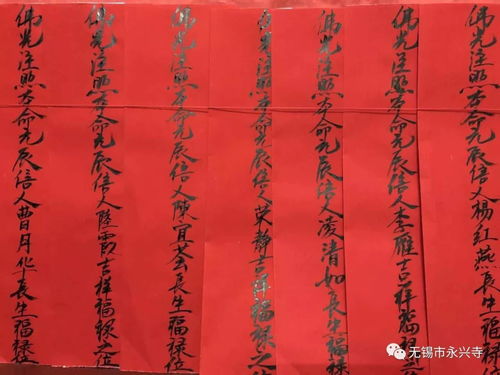 佛光注照本命元辰信人楊红燕長生福禄位
佛光注照本命元辰信人李雁吉祥福禄位
佛光注照本命元辰信人凌清如長生福禄
佛光注照本命元辰信人静吉祥福禄之
佛光注照本命元辰信人陳宜長生福禄位
佛光注照本命元辰信人陸霞吉祥福禄之位
佛光注照本命元辰信人曹月华長生福禄位
无锡市永兴寺